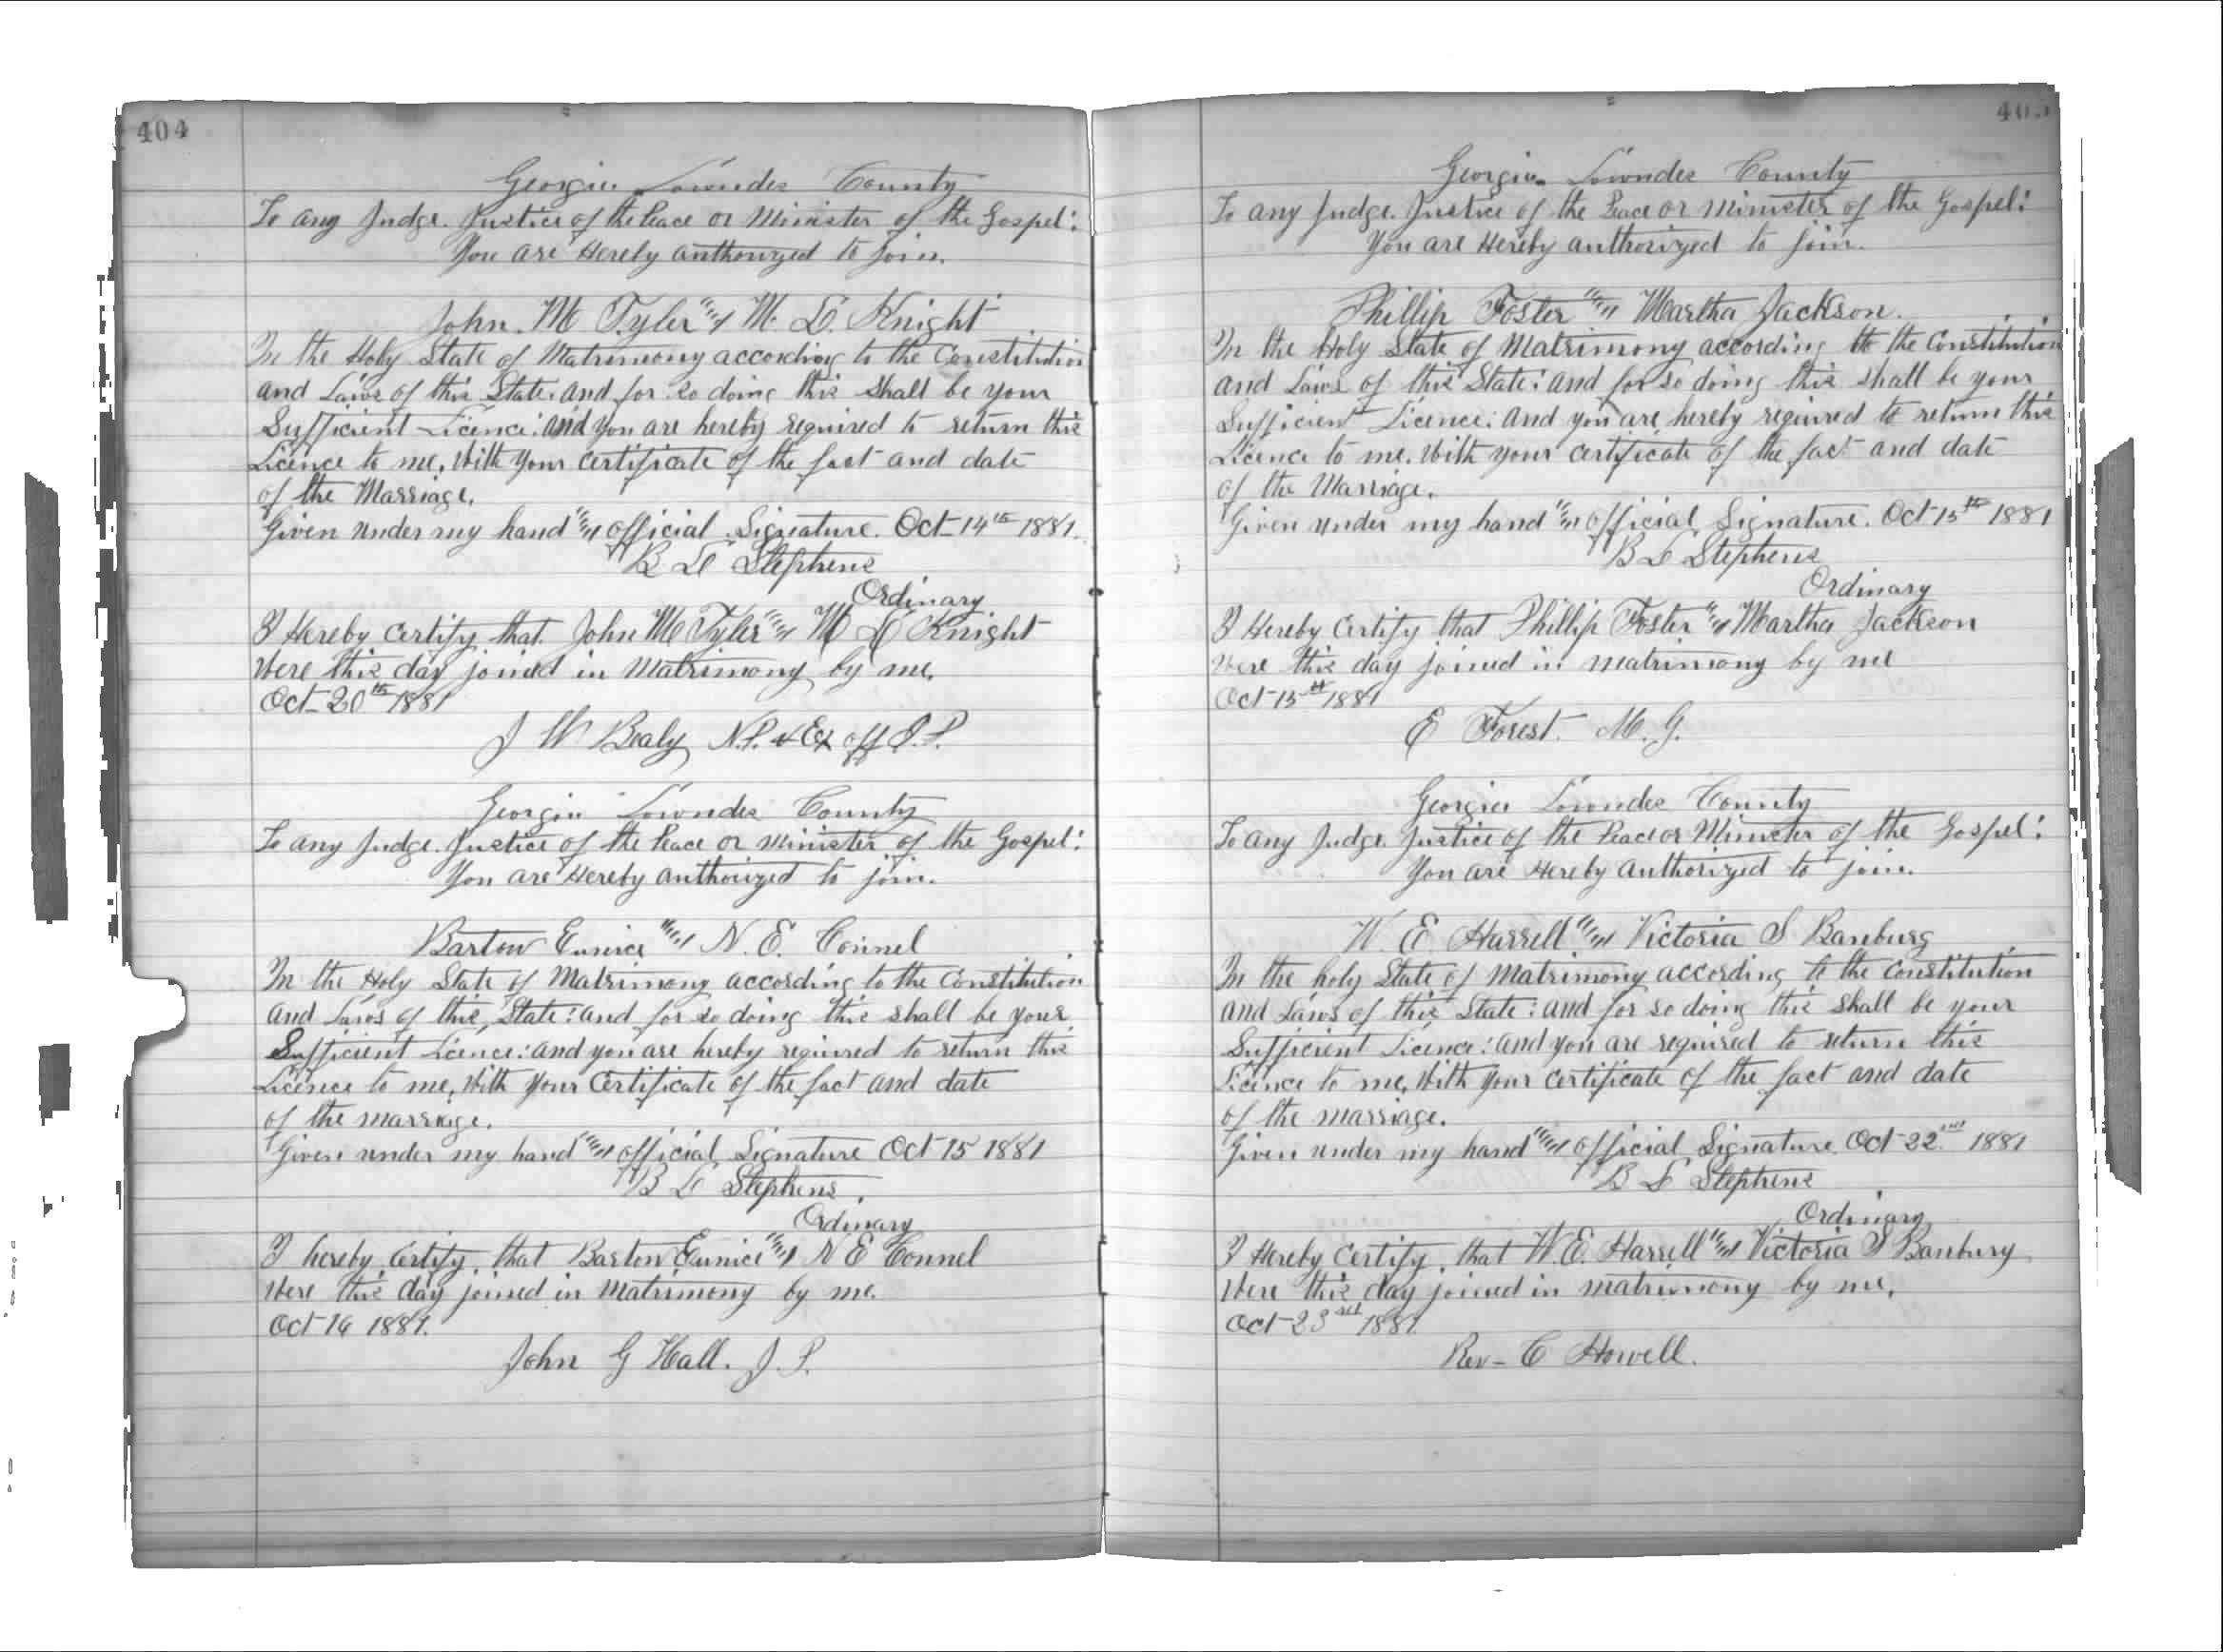 404
Georgia Lowndes County
To any Judge. Justice of the Peace or Minister of the Gospel:
You are Hereby authorized to join.
John. M Tyler and M. L. Knight
In the Holy State of Matrimony according to the Constitution
and Laws of this State: and for so doing this shall be your
Sufficient Licence: and you are hereby required to return this
Licence to me, With your certificate of the fact and date
of the Marriage.
Given under my hand and official Signature. Oct 14th 1881.
B L Stephens
Ordinary
I Hereby Certify that John M Tyler and M L Knight
Were this day joined in Matrimony by me,
Oct 20th 1881
J W Bealy N.P. & Ex off J.P.
Georgia Lowndes County
To any Judge. Justice of the Peace or Minister of the Gospel:
You are Hereby authorized to join.
Barton Eunice and N. E. Connel
In the Holy State of Matrimony according to the Constitution
and Laws of this State: and for so doing this shall be your
Sufficient Licence: and you are hereby required to return this
Licence to me, With your Certificate of the fact and date
of the marriage.
Given under my hand and official Signature Oct 15 1881
B L Stephens.
Ordinary
I hereby Certify that Barton Eunice and N E Connel
Were this day joined in Matrimony by me.
Oct 16 1881.
John G Hall. J. P.
Georgia Lowndes County
To any Judge. Justice of the Peace or Minister of the Gospel:
You are Hereby authorized to join.
Phillip Foster and Martha Jackson.
In the Holy State of Matrimony according to the Constitution
and Laws of this State: and for so doing this shall be your
Sufficient Licence: and you are hereby required to return this
Licence to me. With your certificate of the fact and date
of the Marriage.
Given under my hand and official Signature. Oct 15th 1881
B L Stephens
Ordinary
I Hereby Certify that Phillip Foster and Martha Jackson
Were this day joined in matrimony by me
Oct 15th 1881
E Forest. M. G.
Georgia Lowndes County
To any Judge. Justice of the Peace or Minister of the Gospel:
You are Hereby Authorized to join.
W. E Harrell and Victoria S Banburg
In the holy State of Matrimony according to the Constitution
and Laws of this State: and for so doing this shall be your
Sufficient Licence: and you are required to return this
Licence to me, With your certificate of the fact and date
of the marriage.
Given under my hand and official Signature. Oct 22nd 1881
B L Stephens
Ordinary
I Hereby Certify that W. E. Harrell and Victoria S Banbury
Were this day joined in matrimony by me,
Oct 23rd 1881.
Rev- C Howell.